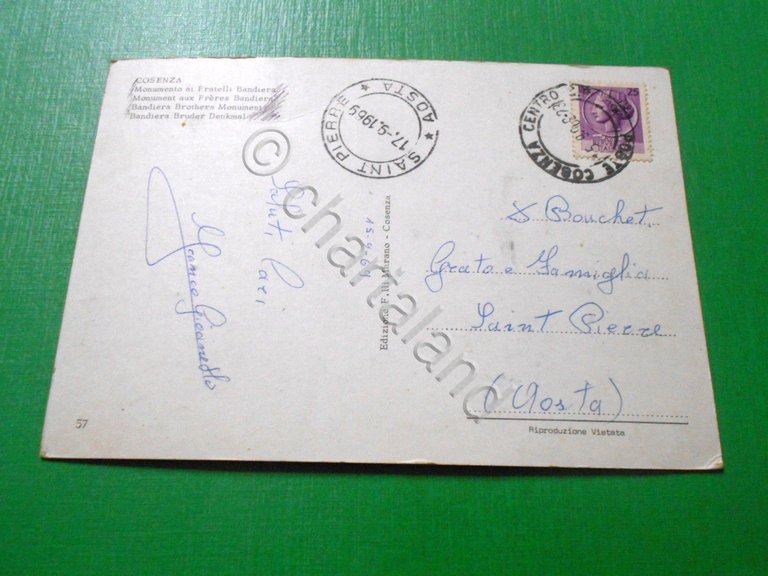 COSENZA
Monumento ai Fratelli Bandiera
Monument aux Frères Bandiera
Bandiera Brothers Monument
Bandiera Bruder Denkmal
* SAINT PIERRE *
AOSTA
17.-9.1969
POSTE COSENZA CENTRO
25
Saluti Cari
Edizione F.lli Murano - Cosenza
Bouchet
Grato e Famiglia
Saint Pierre
(Aosta)
57
Riproduzione Vietata
© chartaland